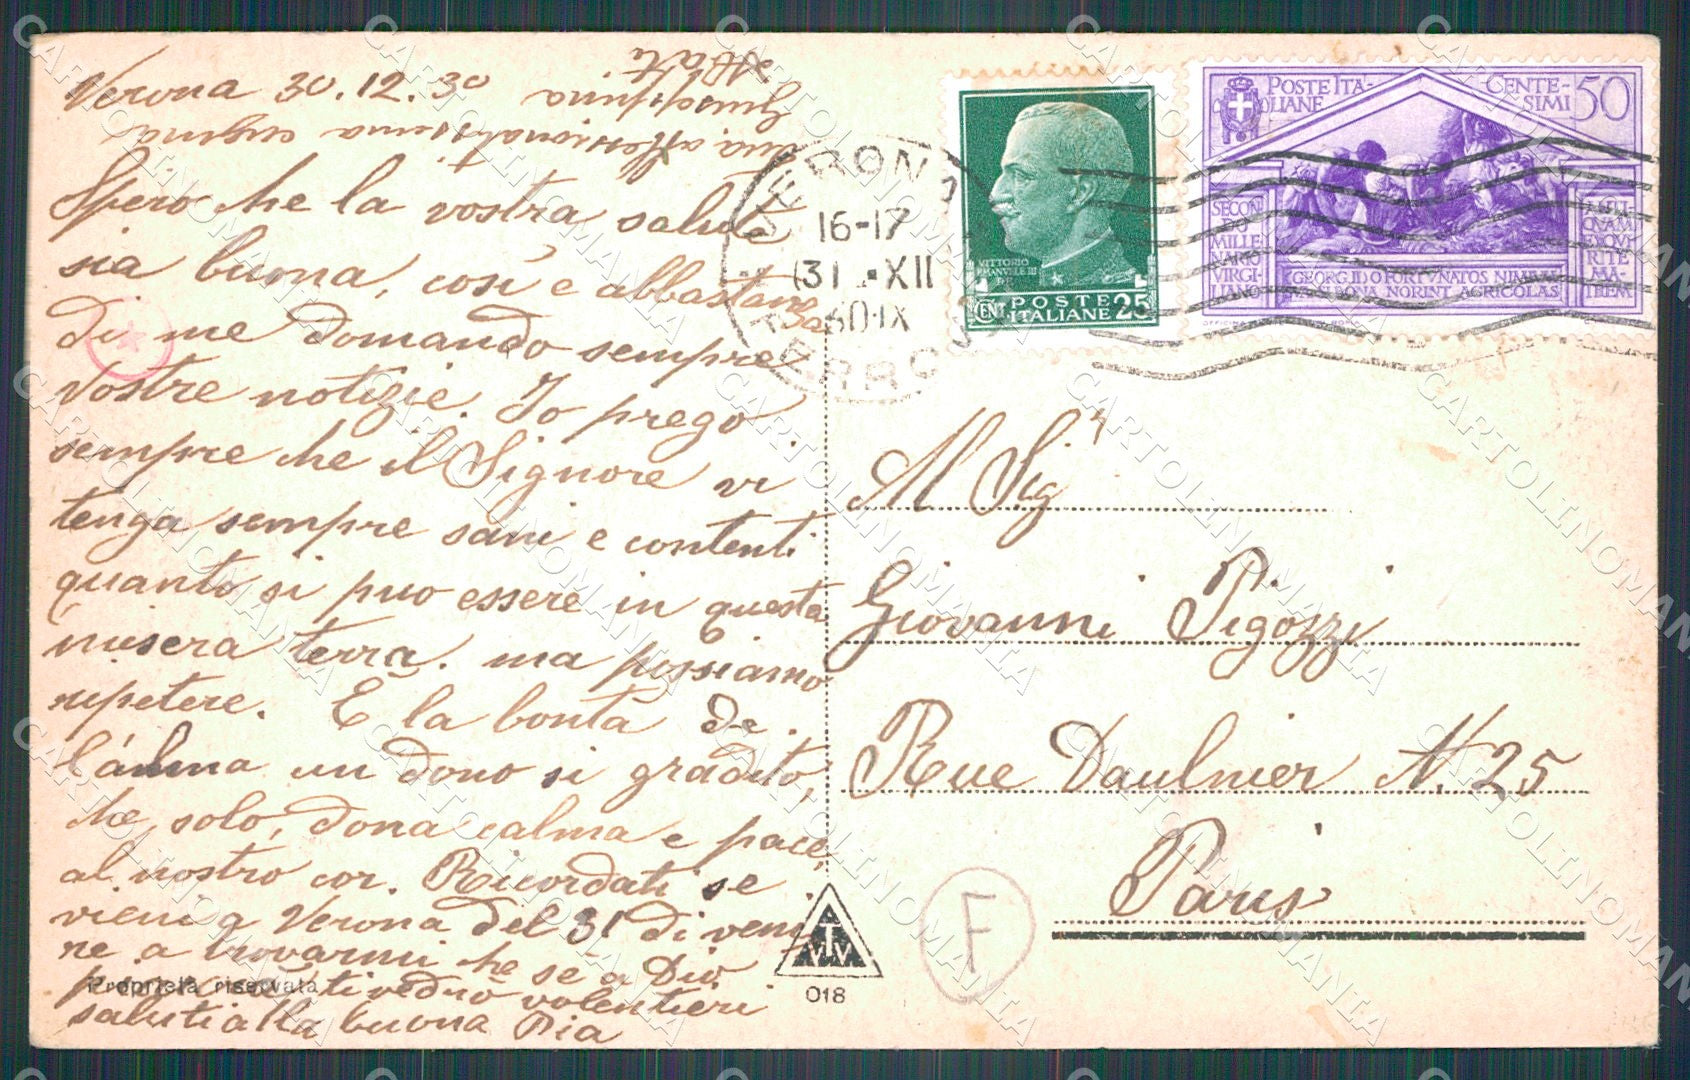 Verona 30.12.30
Spero che la vostra salute
sia buona, così e abbastanza
di me domando sempre
vostre notizie. Io prego
sempre che il Signore vi
tenga sempre sani e contenti
quanto si puo essere in questa
misera terra. ma possiamo
ripetere. E la bontà de
l'alma un dono si gradito,
che solo, dona calma e pace
al nostro cor. Ricordati se
vieni a Verona del 31 di veni
re a trovarmi che se a Dio
ti vedrò volentieri
saluti alla buona Pia
tua affessionatissima cugina
Giuseppina
Abati
Proprietà riservata
VERONA
16-17
31 XII
30 IX
FERROVIA
VITTORIO
EMANVELE III
RE
CENT POSTE 25
ITALIANE
POSTE ITA-
LIANE
CENTE-
SIMI 50
SECON
DO
MILLE
NARIO
VIRGI-
LIANO
RITE
MA-
TREM
GEORG. II D O FORTVNATOS NIMIVM
SVA SI BONA NORINT AGRICOLAS
Al Sig
Giovanni Pigozzi
Rue Daulnier N. 25
Paris
F
VVV
018
CARTOLINOMANIA